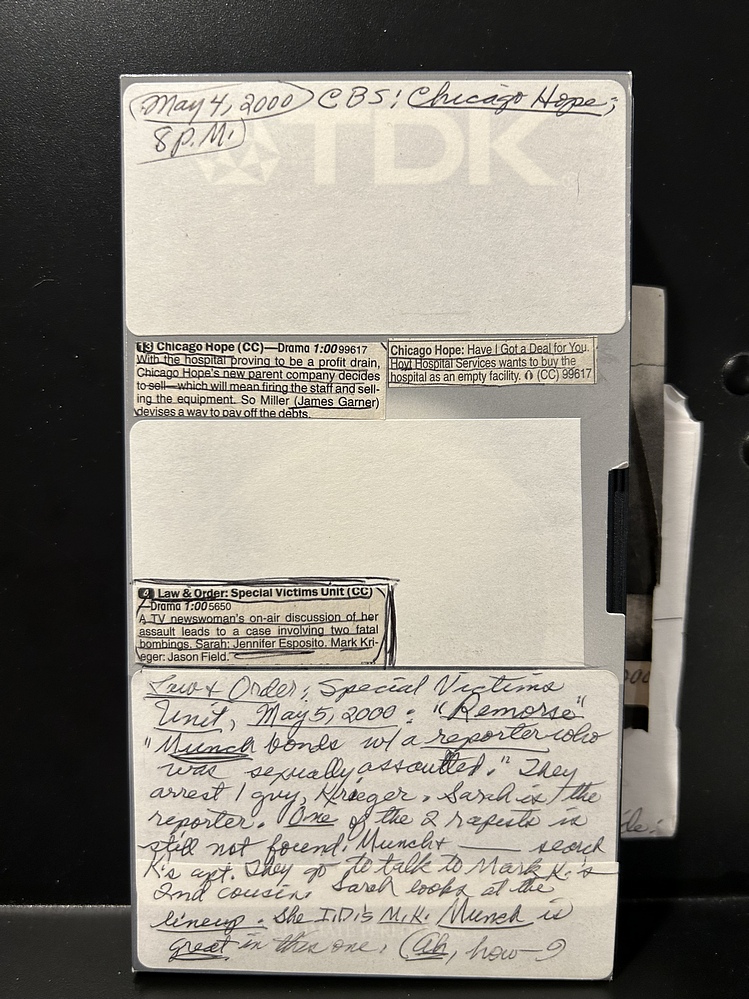 May 4, 2000 CBS: Chicago Hope;
8 P.M.
TDK
13 Chicago Hope (CC)—Drama 1:00 99617
With the hospital proving to be a profit drain,
Chicago Hope's new parent company decides
to sell—which will mean firing the staff and sell-
ing the equipment. So Miller (James Garner)
devises a way to pay off the debts.
Chicago Hope: Have I Got a Deal for You.
Hoyt Hospital Services wants to buy the
hospital as an empty facility. (CC) 99617
Law & Order: Special Victims Unit (CC)
—Drama 1:00 5650
A TV newswoman's on-air discussion of her
assault leads to a case involving two fatal
bombings. Sarah: Jennifer Esposito. Mark Kri-
eger: Jason Field.
Law & Order: Special Victims
Unit, May 5, 2000: "Remorse"
"Munch bonds w/ a reporter who
was sexually assaulted." They
arrest 1 guy, Krieger. Sarah is the
reporter. One of the 2 rapists is
still not found. Munch + ___ search
K's apt. They go to talk to Mark K.'s
2nd cousin. Sarah looks at the
lineup. She I.D.'s M.K. Munch is
great in this one. (Ah, how—